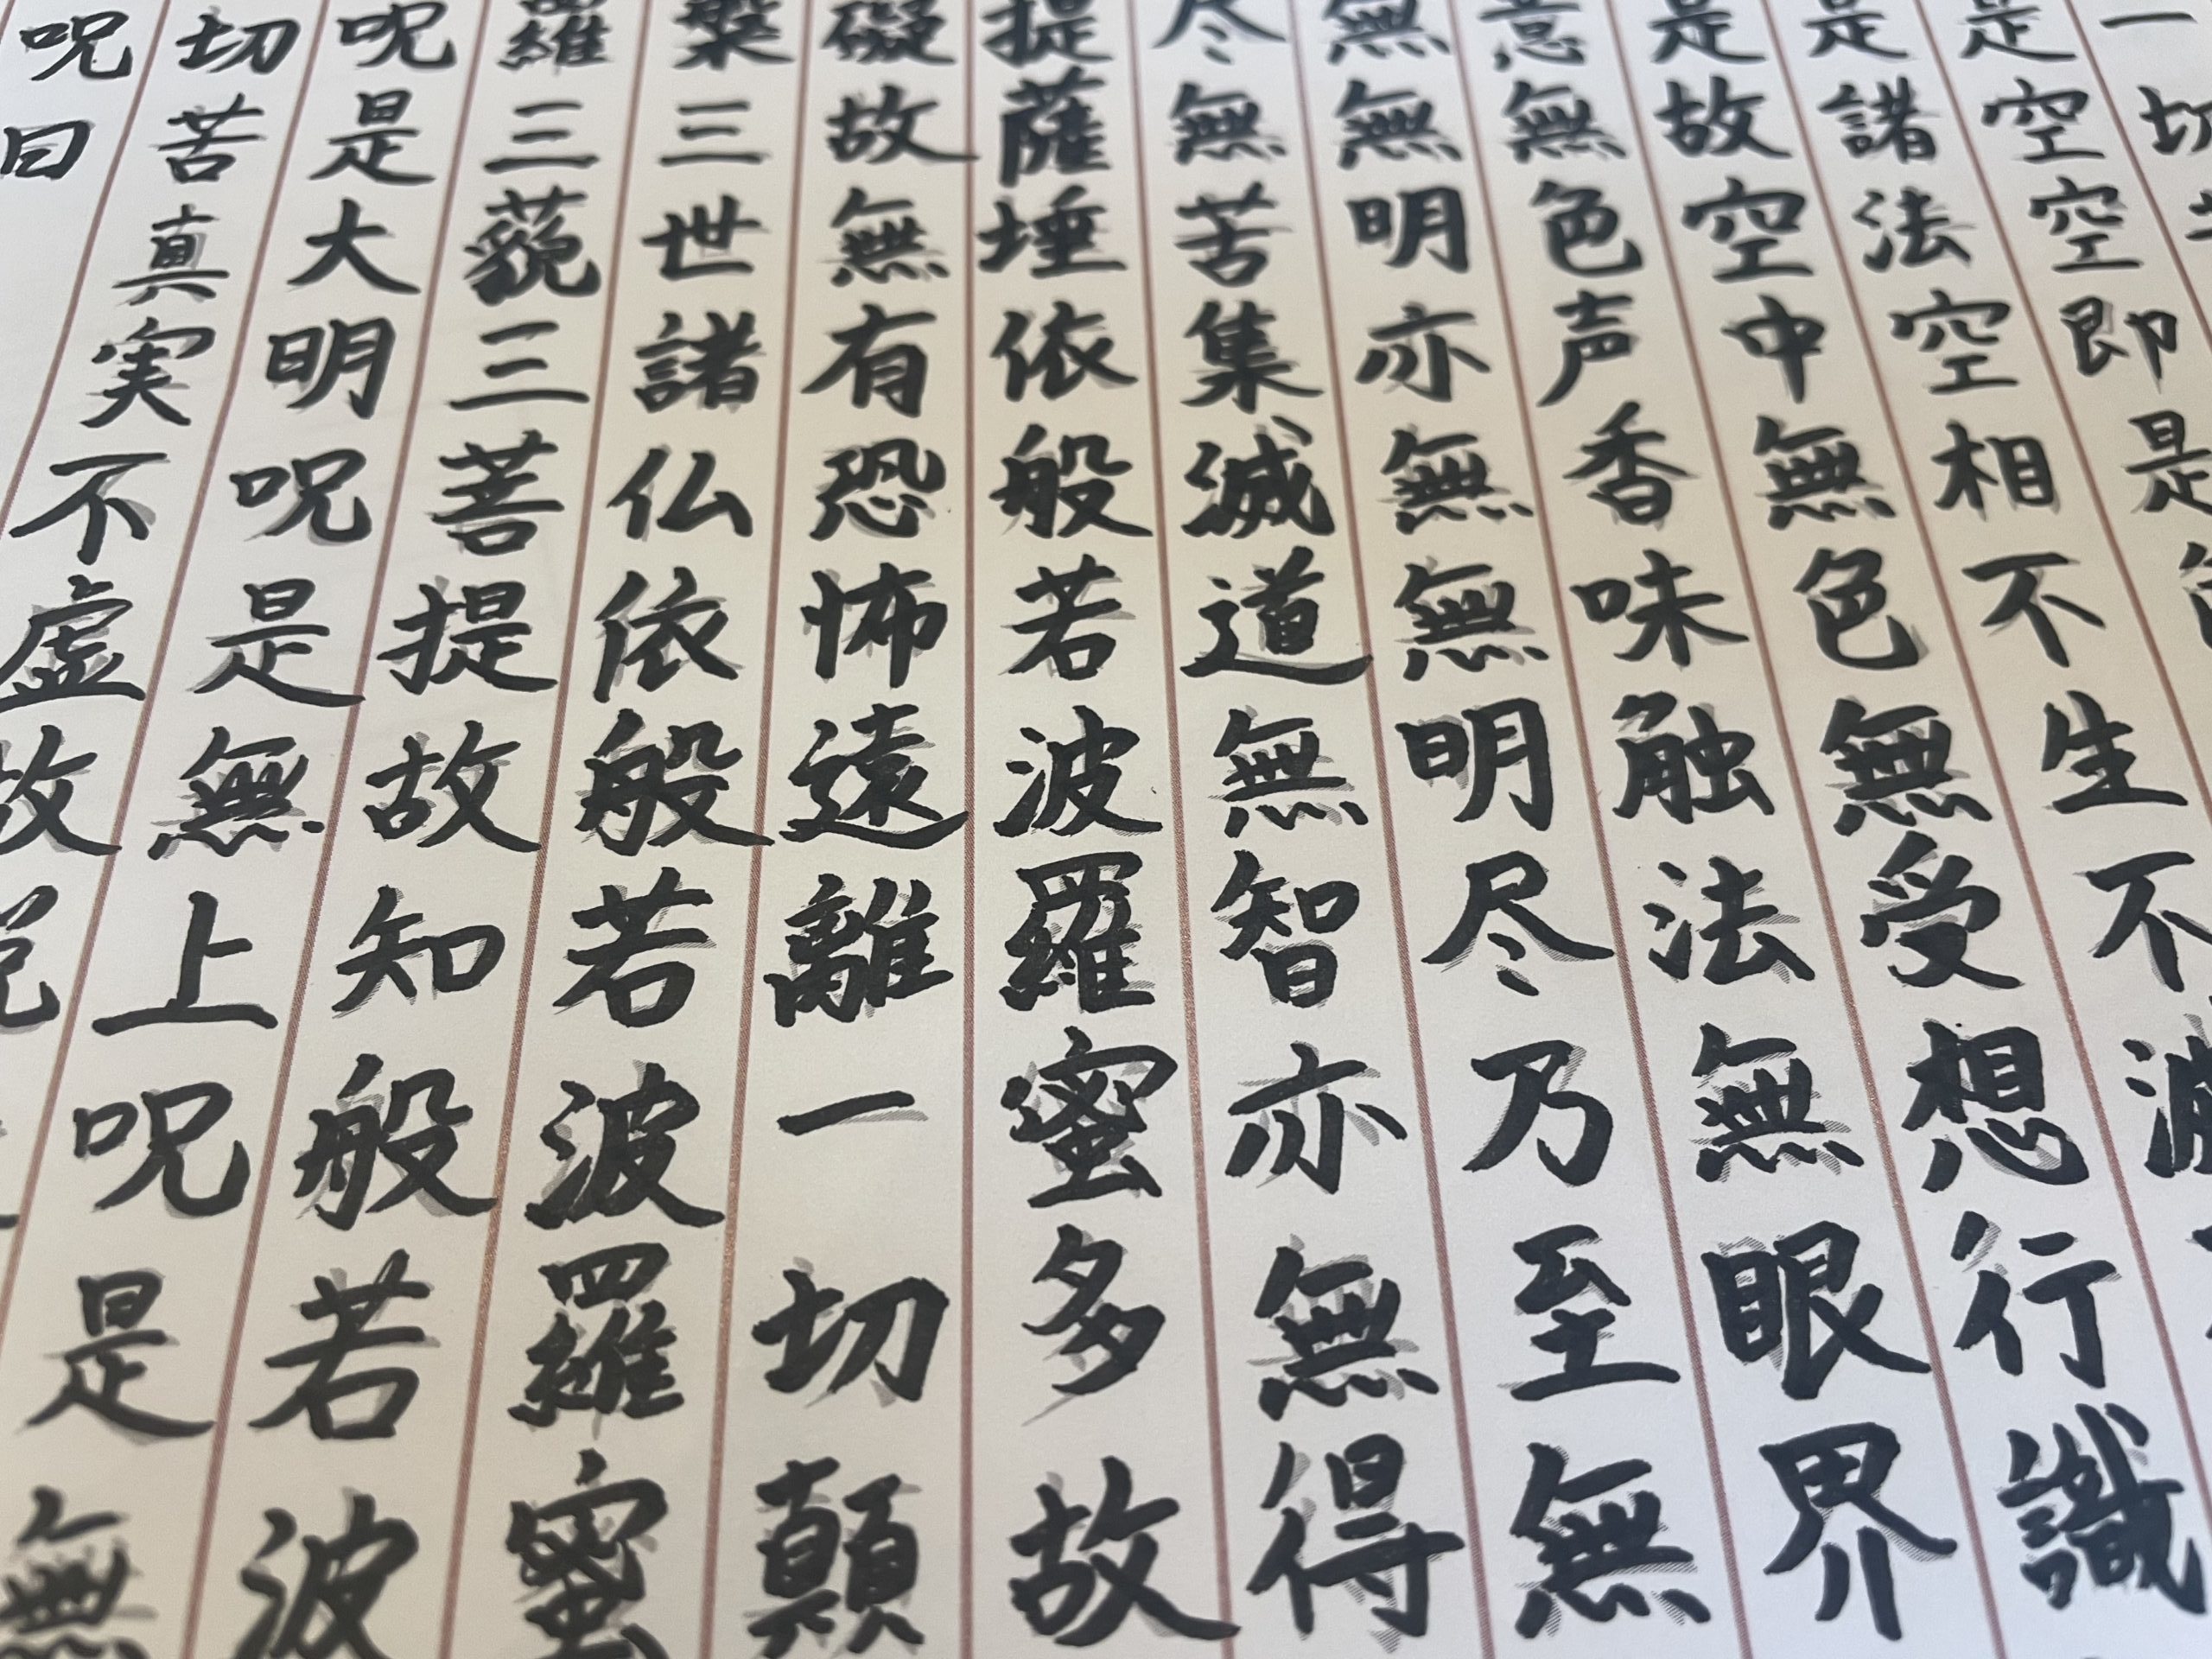 一切
是空空即是
是諸法空相不生不滅
是故空中無色無受想行識
意無色声香味触法無眼界
無無明亦無無明尽乃至無
尽無苦集滅道無智亦無得
提薩埵依般若波羅蜜多故
礙故無有恐怖遠離一切顛
槃三世諸仏依般若波羅蜜
羅三藐三菩提故知般若波
呪是大明呪是無上呪是無
切苦真実不虚故説
呪曰